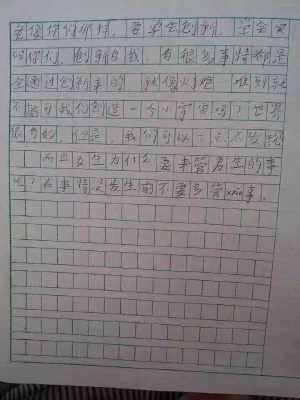 要像你们那样,要学会创新,学会突
破你们,创新自我,有很多事情都是
全通过创新来的,就像火焰,难到就
不能可我们创造一个小宇宙吗?世界
很奇妙,但是,我们可以一点点发现
而且女生为什么要来管男生的事
呢?在事情没发生前不要多管xian事.